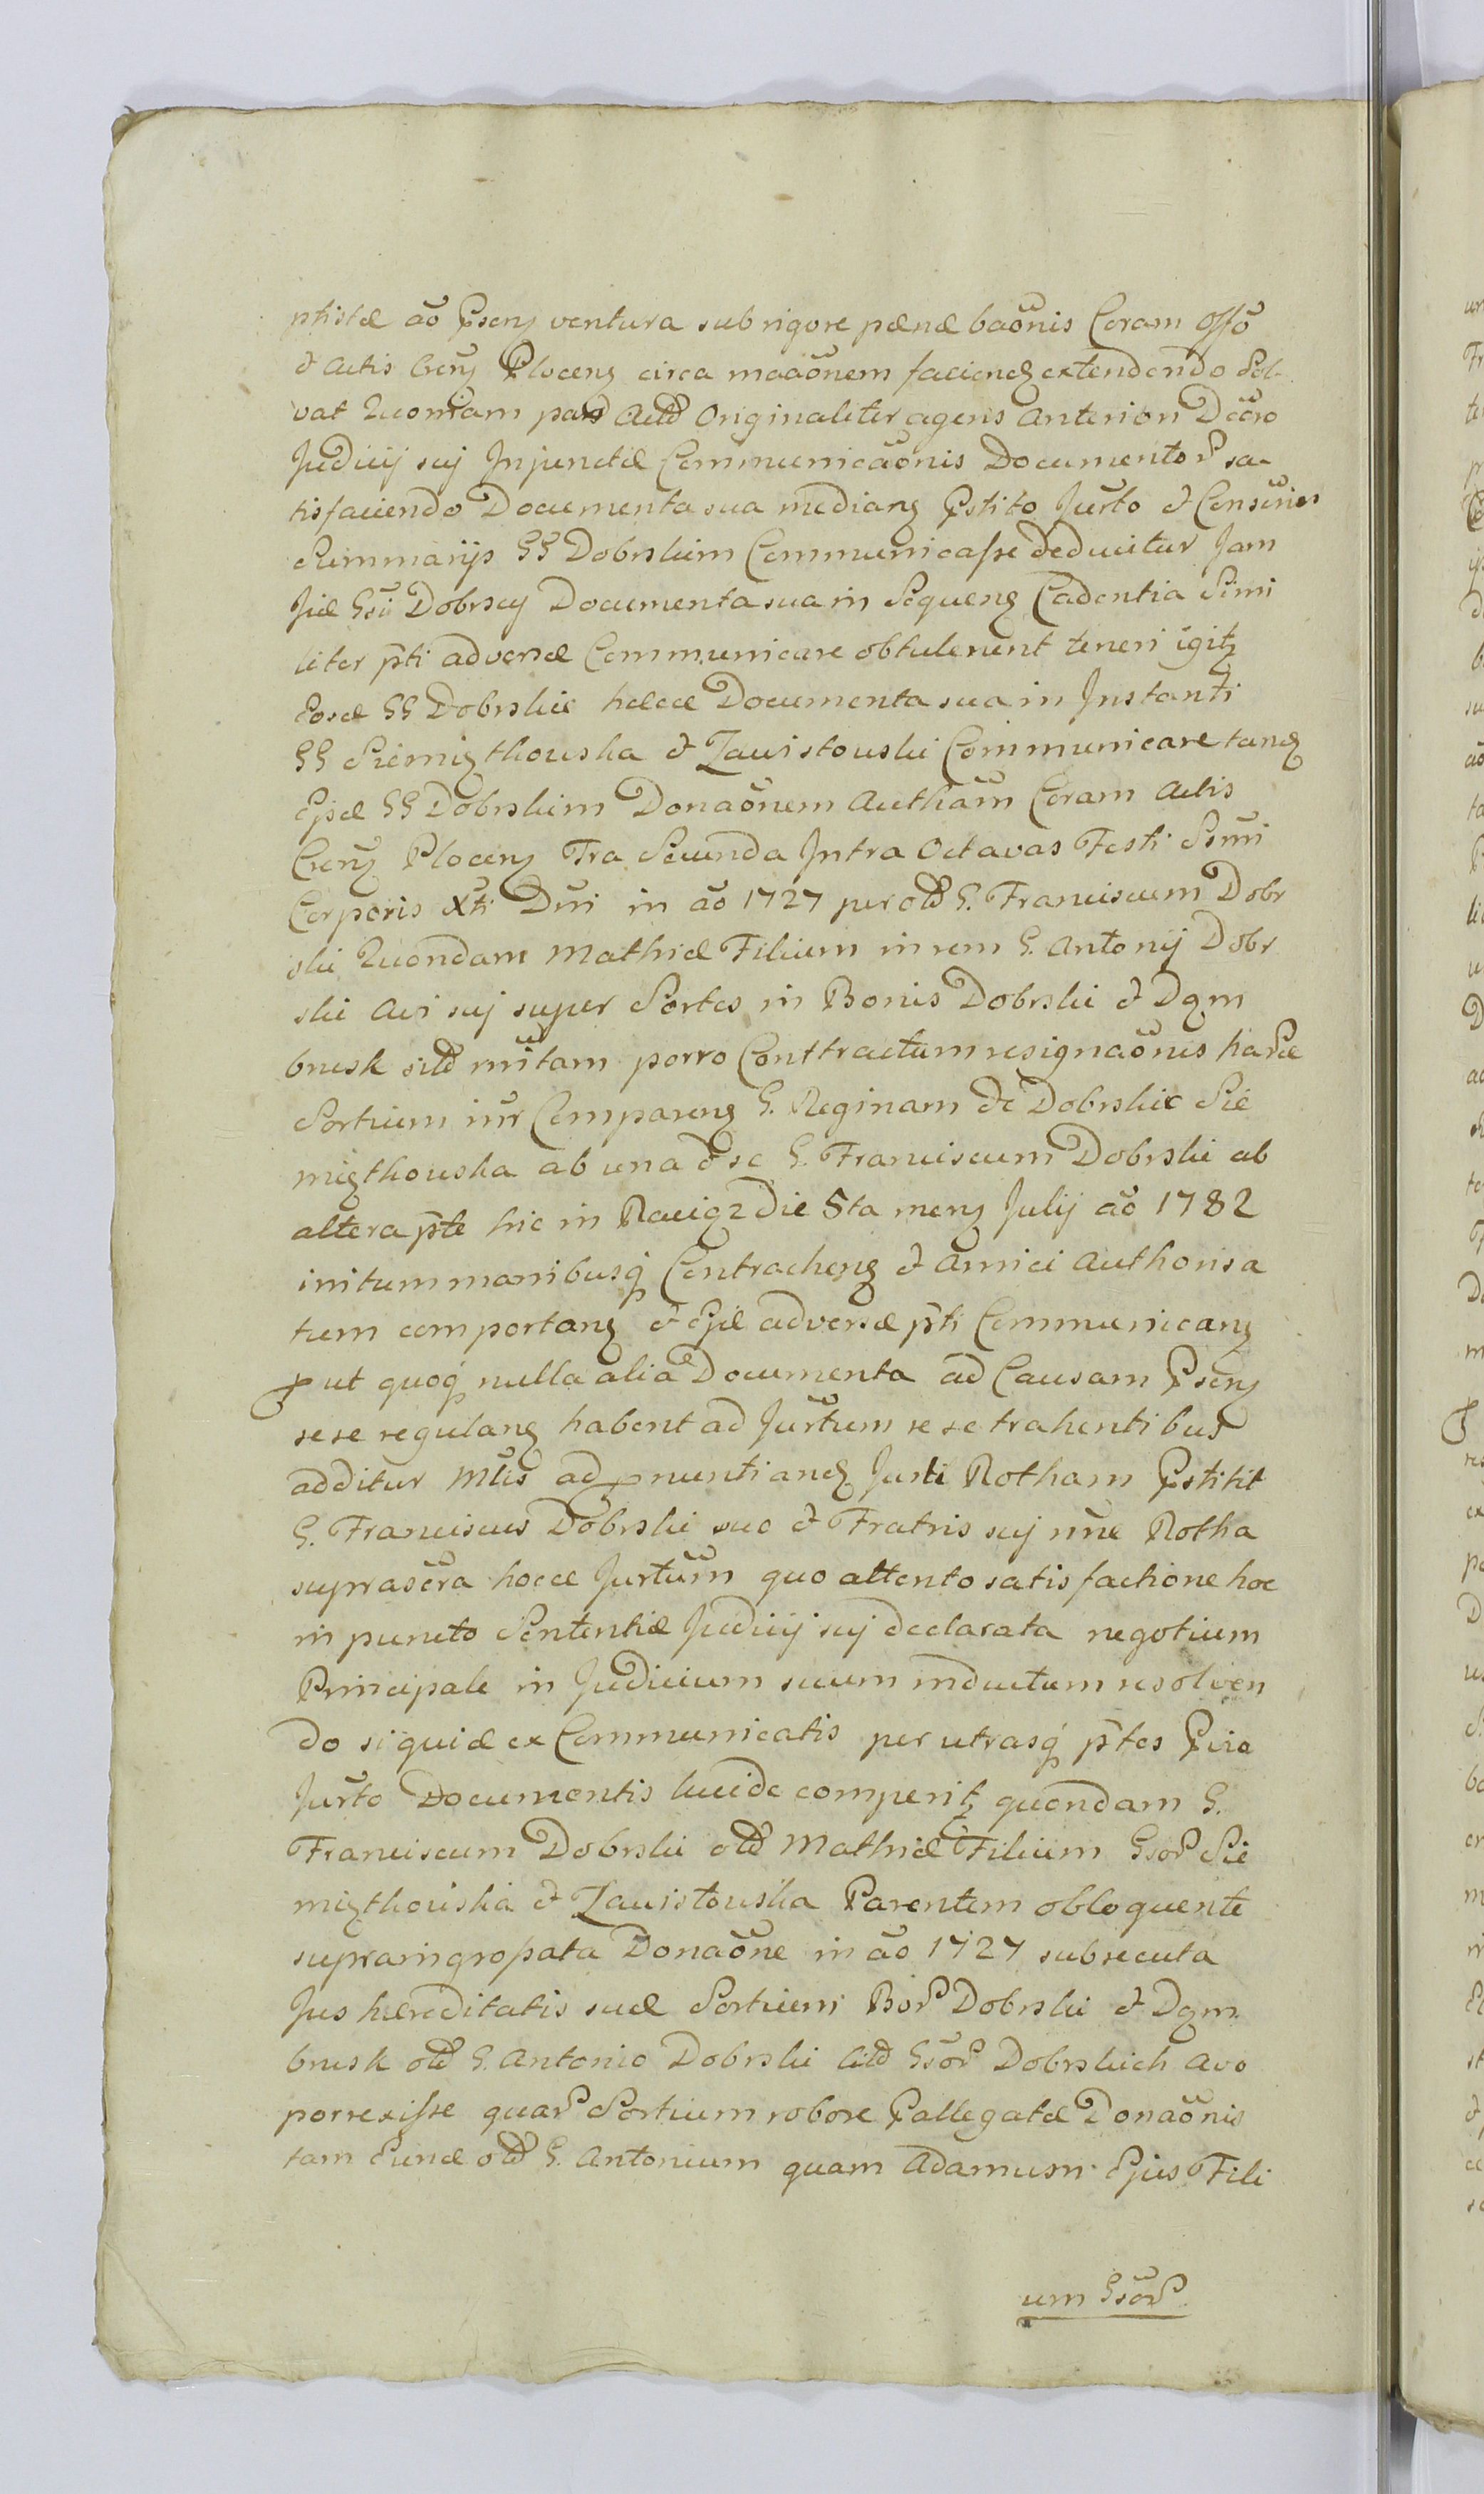 ptistæ aõ Pseng ventura sub rigore pænæ baõnis Coram Offõ
& Actis Creng Ploceng circa maãonem faciend extendendo Sol-
vat Quoniam pars Actd Originaliter agens Anteriori Dccro
Judicij suj Injunctæ Communicaõnis Documentor sa-
tisfaciendo Documenta sua mediang Pstito Jurto & Consur
Summarijs GG Dobrskim Communicasse deducitur Jam
Gsii Dobrscy Documenta sua in Sequeng Cadentia Simi
liter pti adversæ Communicare obtulerunt teneri igitz
Eosd GG Dobrskie hæcce Documenta sua in Instanti
GG Siemigthouska & Zawistouski Communicare tand
Ejsd GG Dobrskim Donaõnem Authãm Coram Actis
Creng Ploceng Fra Secunda Intra Octavas Festi Ssmi
Corporis Xti Dni in aõ 1727 per old G. Franciscum Dobr
ski Quondam Mathiæ Filium in rem G. Antonij Dobr
ski Avi suj super Sortes in Bonis Dobrski & Dąm
brusk sitd porro Conttractum resignaõnis harce
Sortium intr Compareng G. Reginam de Dobrskie Sie
migthouska ab una & se G. Franciscum Dobrski ab
altera pte hic in Raciąz die 5ta meng Julij aõ 1782
initum manibusq Contracheng & Amici Authorisa
tum comportang & Ejd adversæ pti Communicang
put quoq nulla alia Documenta ad Causam Pseng
sese regulang habent ad Jurtum se se trahentibus
additur Mtis ad pnuntiand Jurti Rotham Pstitit
G. Franciscus Dobrski suo & Fratris suj nne Rotha
suprascra hocce Jurtum quo attento satisfactione hoc
in puncto Sententiæ Judicij suj declarata negotium
Principale in Judicium suum inductum resolven
do siquid ex Communicatis per utrasq ptes Pvio
Jurto Documentis lucide comperitz quondam G.
Franciscum Dobrski old Mathiæ Filium Gsor Sie
migthouska & Zawistouska Parentem obloquente
supraingrossata Donaõne in aõ 1727 subsecuta
Jus hæreditatis suæ Sortium Bor Dobrski & Dąm
brusk old G. Antonio Dobrski Citd Gsor Dobrskich Avo
porrexisse quar Sortium robore Pallegatæ Donaõnis
tam Eund old G. Antonium quam Adamum Ejus Fili
um Gsor